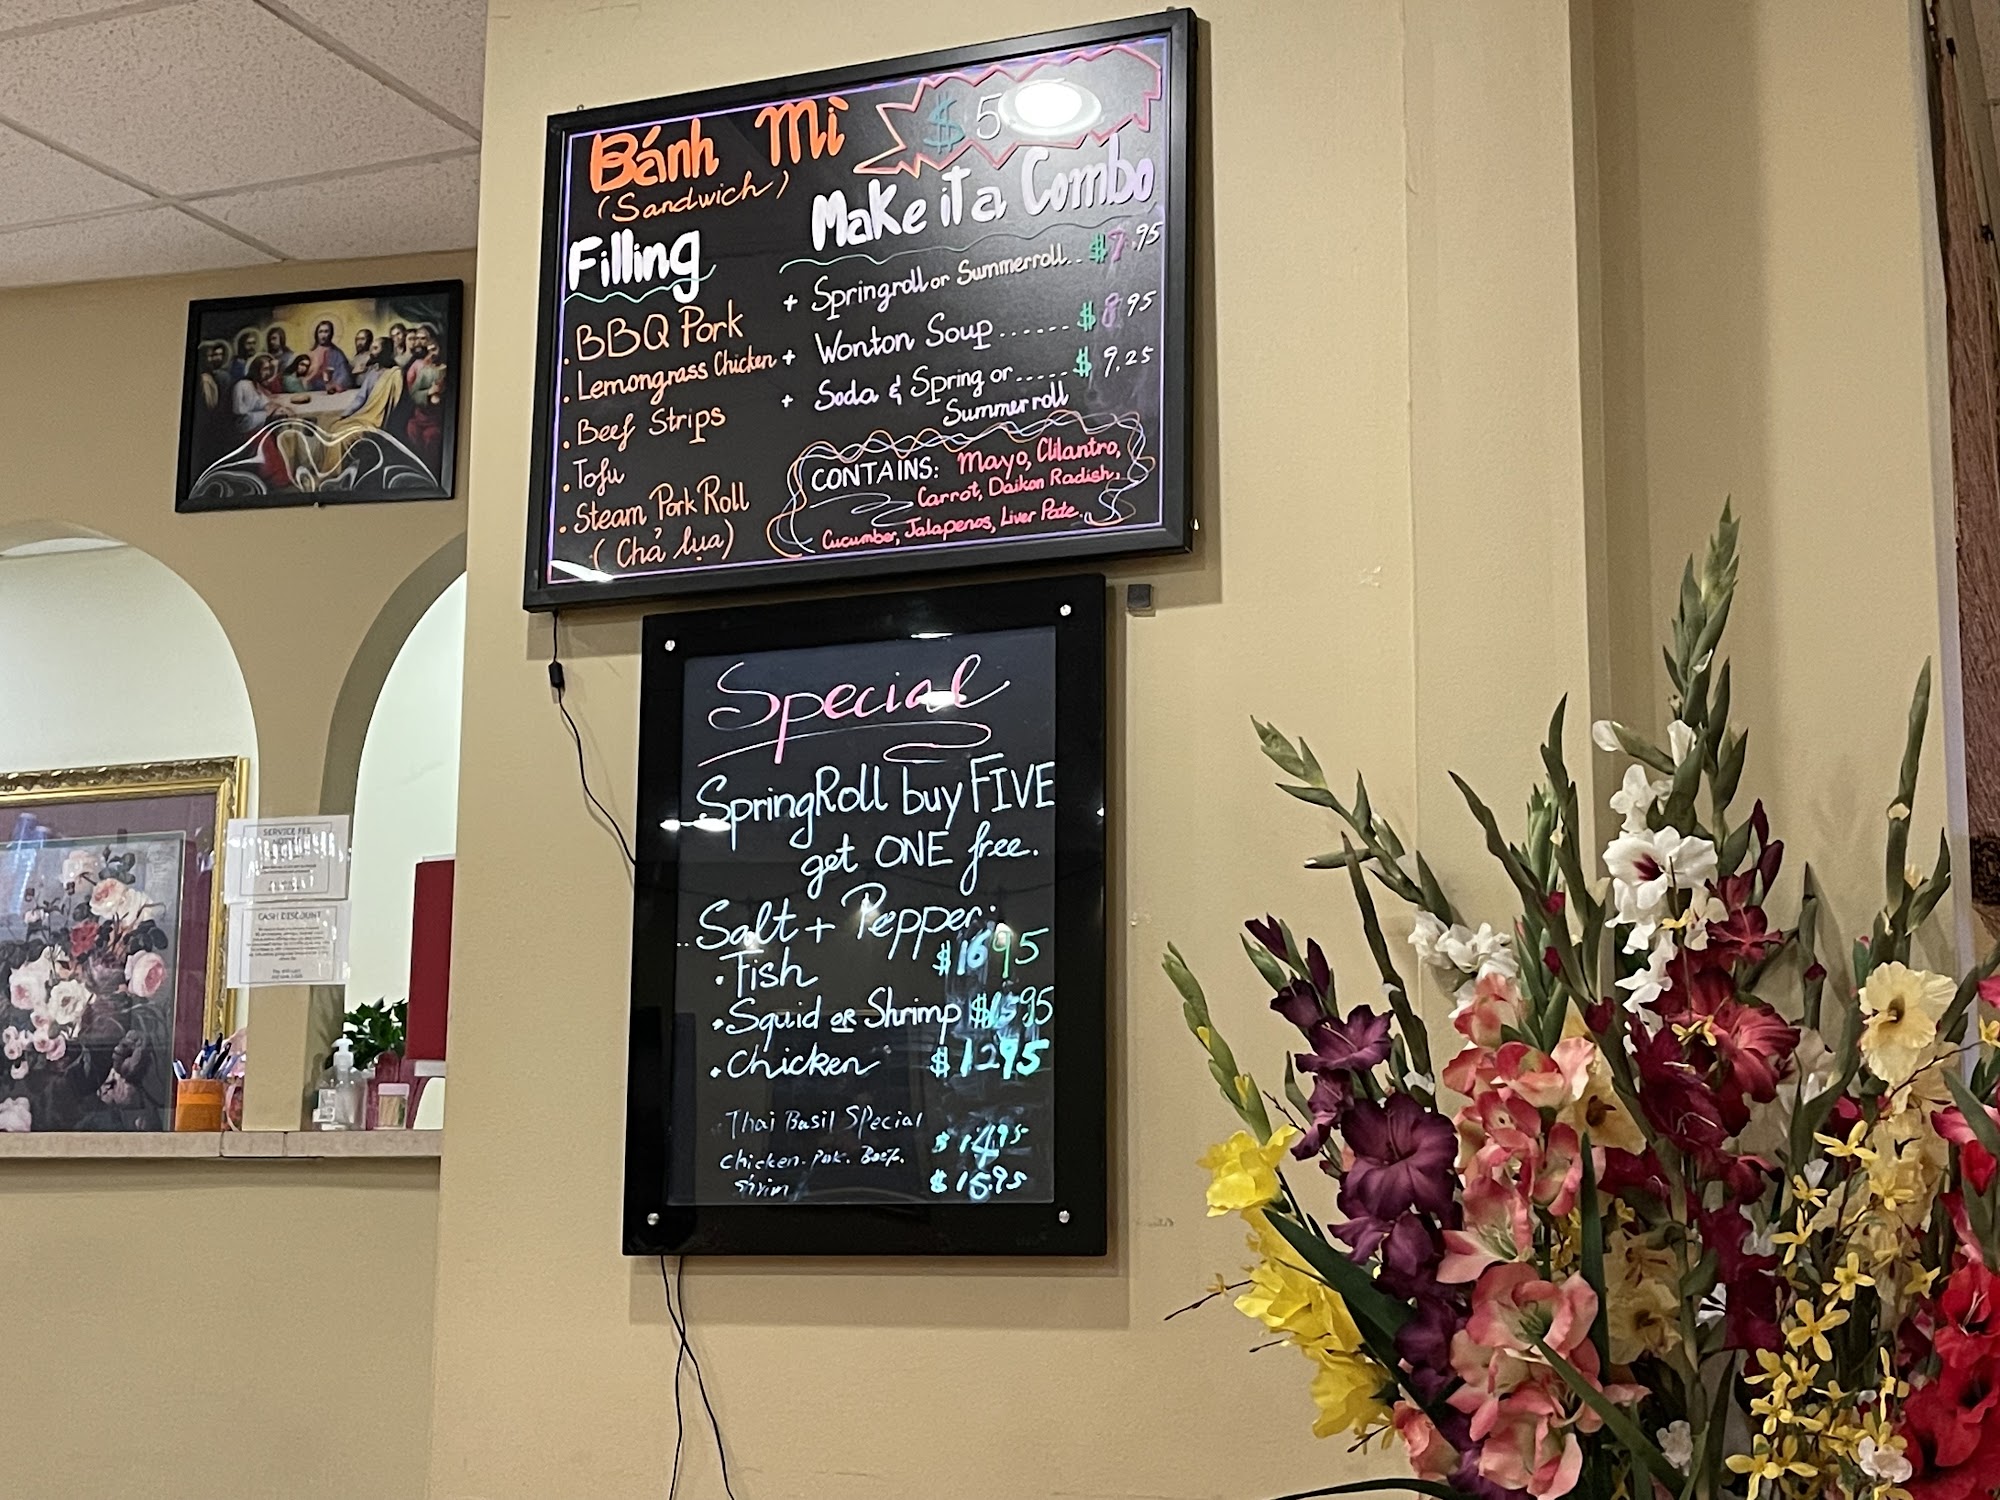 Bánh Mì
(Sandwich)
$5
Filling
. BBQ Pork
. Lemongrass Chicken
. Beef Strips
. Tofu
. Steam Pork Roll
(Chả lụa)
Make it a Combo
+ Springroll or Summerroll.. $7.95
+ Wonton Soup ...... $8.95
+ Soda & Spring or ..... $9.25
Summerroll
CONTAINS: Mayo, Cilantro,
Carrot, Daikon Radish,
Cucumber, Jalapenos, Liver Pate.
Special
SpringRoll buy FIVE
get ONE free.
Salt + Pepper:
. Fish $16.95
. Squid OR Shrimp $15.95
. Chicken $12.95
Thai Basil Special
Chicken. Pok. Beef. $14.95
$15.95
SERVICE FEE
CASH DISCOUNT